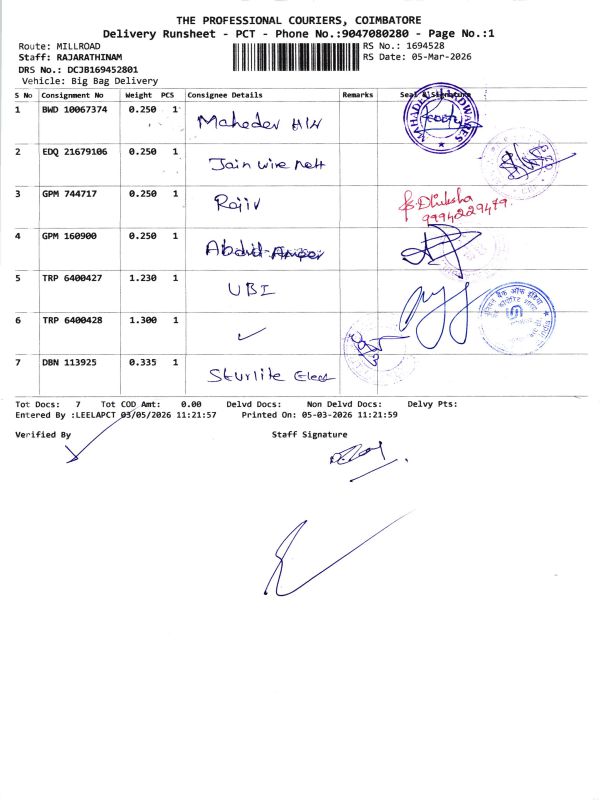 THE PROFESSIONAL COURIERS, COIMBATORE
Delivery Runsheet - PCT - Phone No.:9047080280 - Page No.:1
Route: MILLROAD RS No.: 1694528
Staff: RAJARATHINAM RS Date: 05-Mar-2026
DRS No.: DCJB169452801
Vehicle: Big Bag Delivery
S No Consignment No Weight PCS Consignee Details Remarks Seal & Signature
1 BWD 10067374 0.250 1 Mahadev H/W
2 EDQ 21679106 0.250 1 Jain wire nett
3 GPM 744717 0.250 1 Rajiv Dhiksha
9994229479
4 GPM 160900 0.250 1
5 TRP 6400427 1.230 1 UBI
6 TRP 6400428 1.300 1 ✓
7 DBN 113925 0.335 1 Sturlite Elect
Tot Docs: 7 Tot COD Amt: 0.00 Delvd Docs: Non Delvd Docs: Delvy Pts:
Entered By :LEELAPCT 03/05/2026 11:21:57 Printed On: 05-03-2026 11:21:59
Verified By Staff Signature